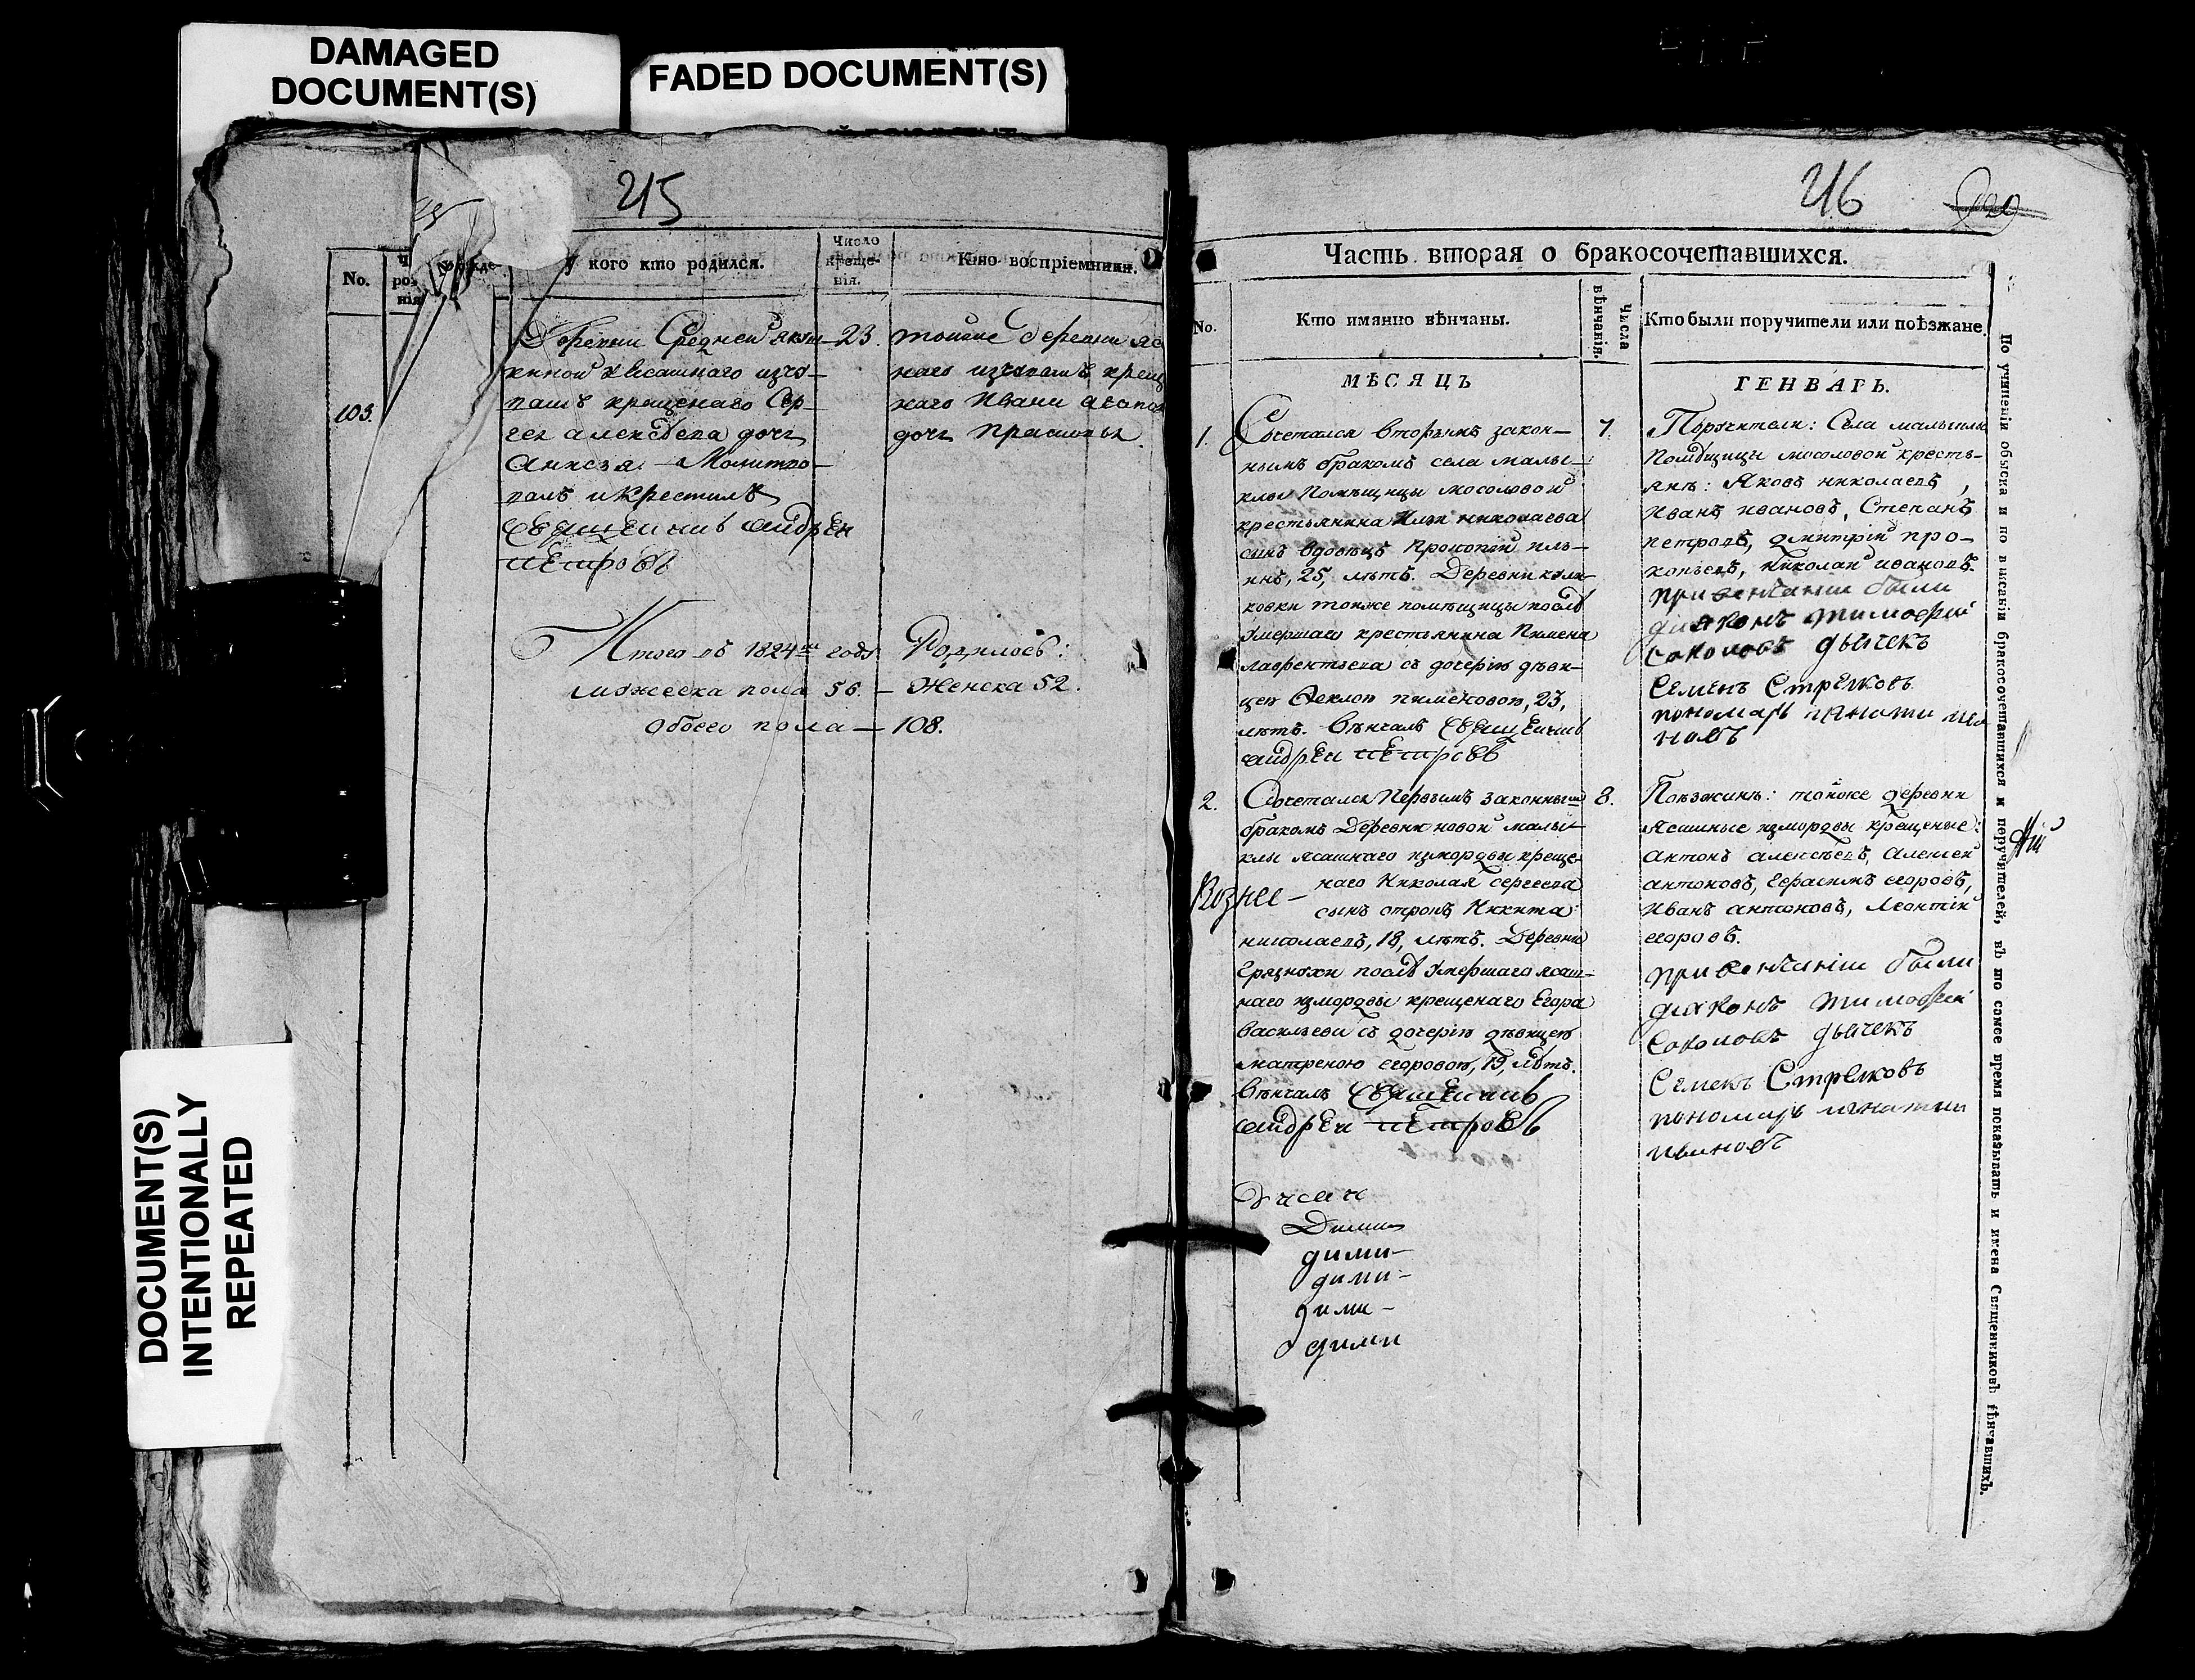 DAMAGED
DOCUMENT(S)
FADED DOCUMENT(S)
215
No.
кого кто родился.
Число
креще-
нія.
Кто воспріемники.
103.
Деревни Средней якуш-
киной ясашнаго изчу-
вашъ крещенаго Сер-
гея алексѣева дочь
Анисья. Молитво-
валъ и крестилъ
Священникъ андрей
петровъ
23.
тойже деревни яса
наго изчувашъ крещ
наго Ивана
дочь прасковья
Итого въ 1824м году Родилось:
мужеска пола 56. — Женска 52.
Обоего пола — 108.
DOCUMENT(S)
INTENTIONALLY
REPEATED
216
Часть вторая о бракосочетавшихся.
No.
Кто имянно вѣнчаны.
Числа
вѣнчанія.
Кто были поручители или поѣзжане.
МѢСЯЦЪ
ГЕНВАРЬ.
1.
Сочетался вторымъ закон-
нымъ бракомъ села малы-
клы Помѣщицы мосоловой
крестьянина Ильи николаева
сынъ вдовецъ Прокопій иль-
инъ, 25, лѣтъ. Деревни
ковки тойже помѣщицы послѣ
умершаго крестьянина Пимена
лаврентьева съ дочерію дѣви-
цею Феклою пименовою, 23,
лѣтъ. Вѣнчалъ Священникъ
андрей петровъ
7.
Поручители: Села малыклы
Помѣщицы мосоловой кресть-
янъ: Яковъ николаевъ,
Иванъ ивановъ, Степанъ
петровъ, дмитрій про-
копьевъ, Николай ивановъ.
при венчаніи были
диаконъ тимофей
Соколовъ дьячекъ
Семенъ Стрелковъ
пономарь игнатий ива
новъ
2.
Сочетался Первымъ законнымъ
бракомъ Деревни новой малы-
клы ясашнаго измордвы креще-
наго Николая сергеева
сынъ отрокъ Никита
николаевъ, 18, лѣтъ. Деревни
Грязнухи послѣ умершаго ясаш-
наго измордвы крещенаго Егора
Васильева съ дочерію дѣвицею
матреною егоровою, 19, лѣтъ.
Вѣнчалъ Священникъ
андрей петровъ
8.
Поѣзжинъ: тойже деревни
Ясашные измордвы крещеные:
антонъ алексѣевъ, алексей
антоновъ, Герасимъ егоровъ,
Иванъ антоновъ, леонтій
егоровъ.
при венчаніи были
диаконъ тимофей
Соколовъ дьячекъ
Семенъ Стрелковъ
пономарь игнатий
ивановъ
дими-
дими-
дими-
дими
По учиненіи обыска и по взысканіи бракосочетавшихся и поручителей, въ то самое время показывать и имена Священниковъ вѣнчавшихъ.